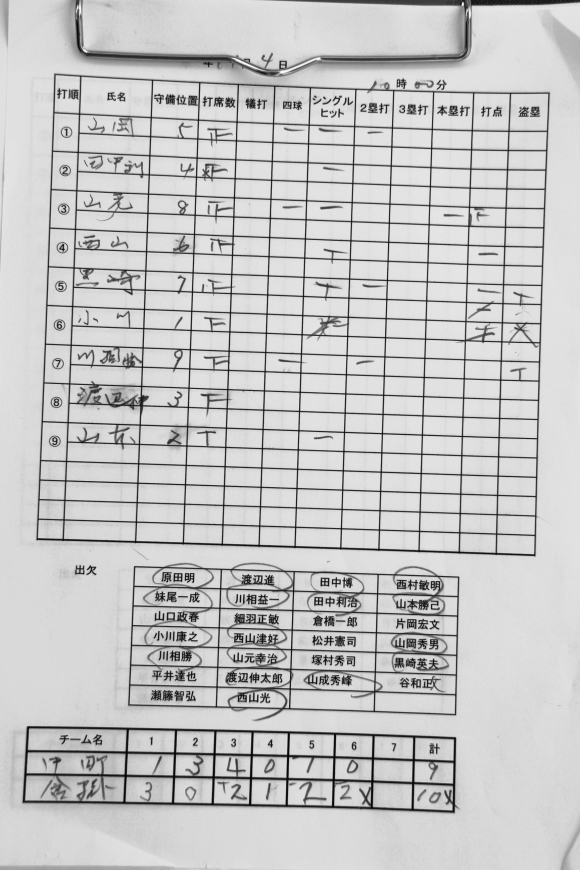 4日
10時00分
打順 氏名 守備位置 打席数 犠打 四球 シングルヒット 2塁打 3塁打 本塁打 打点 盗塁
① 山岡 5 正 一 一 一
② 田中利 4 一
③ 山光 8 正 一 一 一 正
④ 西山 6 正 T 一
⑤ 黒崎 7 正 T 一 一 T
⑥ 小川 1 下
⑦ 川相勝 9 下 一 一 T
⑧ 渡辺伸 3 下
⑨ 山本 2 T 一
出欠
原田明 渡辺進 田中博 西村敏明
妹尾一成 川相益一 田中利治 山本勝己
山口政春 細羽正敏 倉橋一郎 片岡宏文
小川康之 西山津好 松井憲司 山岡秀男
川相勝 山元幸治 塚村秀司 黒崎英夫
平井達也 渡辺伸太郎 山成秀峰 谷和正
瀬藤智弘 西山光
チーム名 1 2 3 4 5 6 7 計
中町 1 3 4 0 1 0 9
3 0 2 1 2 2X 10X